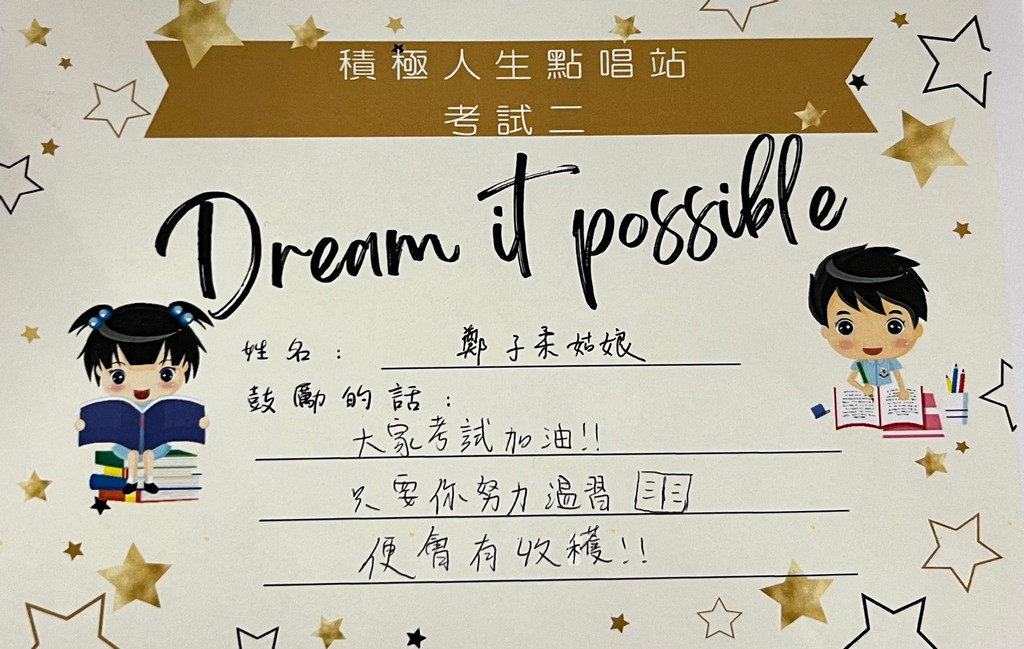 積極人生點唱站
考試二
Dream it possible
姓名： 鄭子柔姑娘
鼓勵的話：
大家考試加油!!
只要你努力溫習
便會有收穫!!